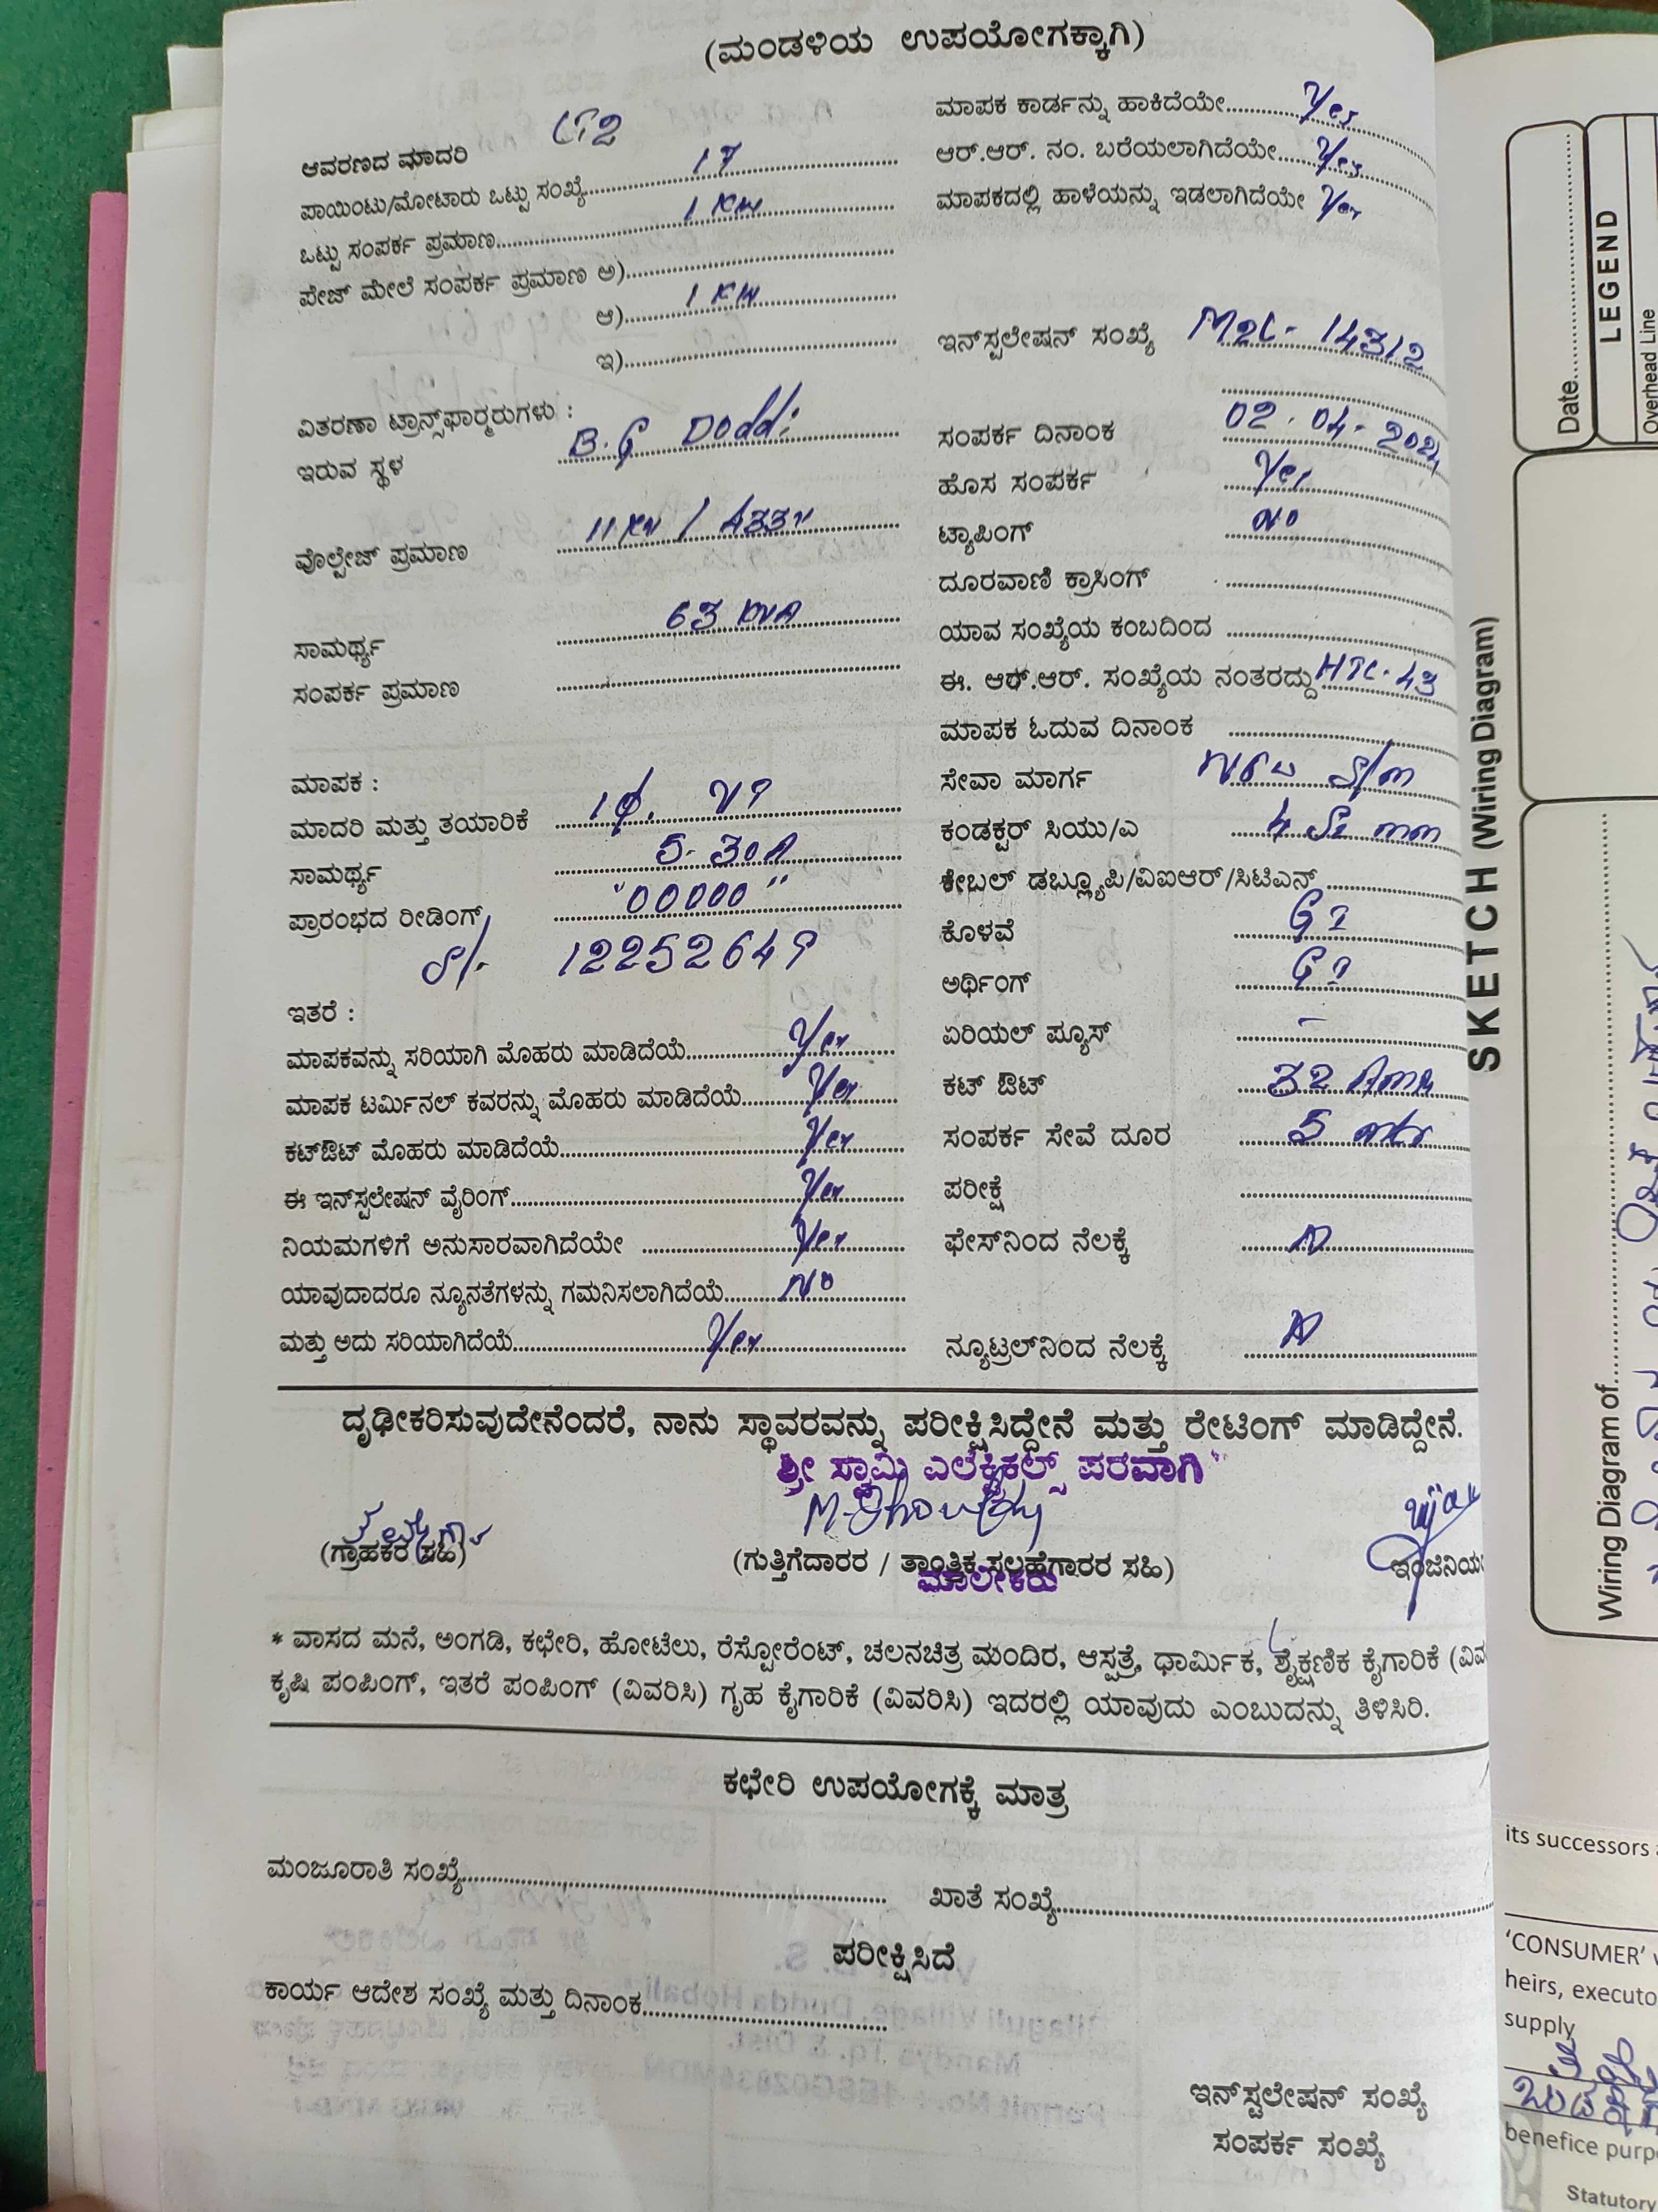 (ಮಂಡಳಿಯ ಉಪಯೋಗಕ್ಕಾಗಿ)
ಆವರಣದ ಮಾದರಿ LT2
ಪಾಯಿಂಟು/ಮೋಟಾರು ಒಟ್ಟು ಸಂಖ್ಯೆ 17
ಒಟ್ಟು ಸಂಪರ್ಕ ಪ್ರಮಾಣ 1 KW
ಪೇಜ್ ಮೇಲೆ ಸಂಪರ್ಕ ಪ್ರಮಾಣ ಅ)
ಆ) 1 KW
ಇ)
ವಿತರಣಾ ಟ್ರಾನ್ಸ್‌ಫಾರ್ಮರುಗಳು :
ಇರುವ ಸ್ಥಳ B.G Doddi
ವೊಲ್ಟೇಜ್ ಪ್ರಮಾಣ 11KV / 433V
ಸಾಮರ್ಥ್ಯ 63 KVA
ಸಂಪರ್ಕ ಪ್ರಮಾಣ
ಮಾಪಕ :
ಮಾದರಿ ಮತ್ತು ತಯಾರಿಕೆ 1φ.
ಸಾಮರ್ಥ್ಯ 5-30A
ಪ್ರಾರಂಭದ ರೀಡಿಂಗ್ "00000"
Sl. 12252649
ಇತರೆ :
ಮಾಪಕವನ್ನು ಸರಿಯಾಗಿ ಮೊಹರು ಮಾಡಿದೆಯೆ Yes
ಮಾಪಕ ಟರ್ಮಿನಲ್ ಕವರನ್ನು ಮೊಹರು ಮಾಡಿದೆಯೆ Yes
ಕಟ್‌ಔಟ್ ಮೊಹರು ಮಾಡಿದೆಯೆ Yes
ಈ ಇನ್‌ಸ್ಪಲೇಷನ್ ವೈರಿಂಗ್ Yes
ನಿಯಮಗಳಿಗೆ ಅನುಸಾರವಾಗಿದೆಯೇ Yes
ಯಾವುದಾದರೂ ನ್ಯೂನತೆಗಳನ್ನು ಗಮನಿಸಲಾಗಿದೆಯೆ NO
ಮತ್ತು ಅದು ಸರಿಯಾಗಿದೆಯೆ Yes
ಮಾಪಕ ಕಾರ್ಡನ್ನು ಹಾಕಿದೆಯೇ Yes
ಆರ್.ಆರ್. ನಂ. ಬರೆಯಲಾಗಿದೆಯೇ Yes
ಮಾಪಕದಲ್ಲಿ ಹಾಳೆಯನ್ನು ಇಡಲಾಗಿದೆಯೇ Yes
ಇನ್‌ಸ್ಪಲೇಷನ್ ಸಂಖ್ಯೆ M2L-14312
ಸಂಪರ್ಕ ದಿನಾಂಕ 02.04-2024
ಹೊಸ ಸಂಪರ್ಕ Yes
ಟ್ಯಾಪಿಂಗ್ NO
ದೂರವಾಣಿ ಕ್ರಾಸಿಂಗ್
ಯಾವ ಸಂಖ್ಯೆಯ ಕಂಬದಿಂದ
ಈ. ಆರ್.ಆರ್. ಸಂಖ್ಯೆಯ ನಂತರದ್ದು HTL-43
ಮಾಪಕ ಓದುವ ದಿನಾಂಕ
ಸೇವಾ ಮಾರ್ಗ New S/m
ಕಂಡಕ್ಟರ್ ಸಿಯು/ಎ 4 Sq mm
ಕೇಬಲ್ ಡಬ್ಲ್ಯೂಪಿ/ವಿಐಆರ್/ಸಿಟಿಎಸ್
ಕೊಳವೆ GI
ಅರ್ಥಿಂಗ್ GI
ಏರಿಯಲ್ ಪ್ಯೂಸ್ -
ಕಟ್ ಔಟ್ 32 Amp
ಸಂಪರ್ಕ ಸೇವೆ ದೂರ 5 mtr
ಪರೀಕ್ಷೆ
ಫೇಸ್‌ನಿಂದ ನೆಲಕ್ಕೆ
ನ್ಯೂಟ್ರಲ್‌ನಿಂದ ನೆಲಕ್ಕೆ
ದೃಢೀಕರಿಸುವುದೇನೆಂದರೆ, ನಾನು ಸ್ಥಾವರವನ್ನು ಪರೀಕ್ಷಿಸಿದ್ದೇನೆ ಮತ್ತು ರೇಟಿಂಗ್ ಮಾಡಿದ್ದೇನೆ.
ಶ್ರೀ ಸ್ವಾಮಿ ಎಲೆಕ್ಟ್ರಿಕಲ್ಸ್ ಪರವಾಗಿ
(ಗ್ರಾಹಕರ ಸಹಿ)
(ಗುತ್ತಿಗೆದಾರರ / ತಾಂತ್ರಿಕ ಸಲಹೆಗಾರರ ಸಹಿ)
ಮಾಲೀಕರು
ಇಂಜಿನಿಯ
* ವಾಸದ ಮನೆ, ಅಂಗಡಿ, ಕಛೇರಿ, ಹೋಟೆಲು, ರೆಸ್ಟೋರೆಂಟ್, ಚಲನಚಿತ್ರ ಮಂದಿರ, ಆಸ್ಪತ್ರೆ, ಧಾರ್ಮಿಕ, ಶೈಕ್ಷಣಿಕ ಕೈಗಾರಿಕೆ (ವಿವ
ಕೃಷಿ ಪಂಪಿಂಗ್, ಇತರೆ ಪಂಪಿಂಗ್ (ವಿವರಿಸಿ) ಗೃಹ ಕೈಗಾರಿಕೆ (ವಿವರಿಸಿ) ಇದರಲ್ಲಿ ಯಾವುದು ಎಂಬುದನ್ನು ತಿಳಿಸಿರಿ.
ಕಛೇರಿ ಉಪಯೋಗಕ್ಕೆ ಮಾತ್ರ
ಮಂಜೂರಾತಿ ಸಂಖ್ಯೆ
ಖಾತೆ ಸಂಖ್ಯೆ
ಪರೀಕ್ಷಿಸಿದೆ
ಕಾರ್ಯ ಆದೇಶ ಸಂಖ್ಯೆ ಮತ್ತು ದಿನಾಂಕ
ಇನ್‌ಸ್ಟಲೇಷನ್ ಸಂಖ್ಯೆ
ಸಂಪರ್ಕ ಸಂಖ್ಯೆ
SKETCH (Wiring Diagram)
Date
LEGEND
Overhead Line
Wiring Diagram of
its successors
'CONSUMER'
heirs, executo
supply
benefice purp
Statutory